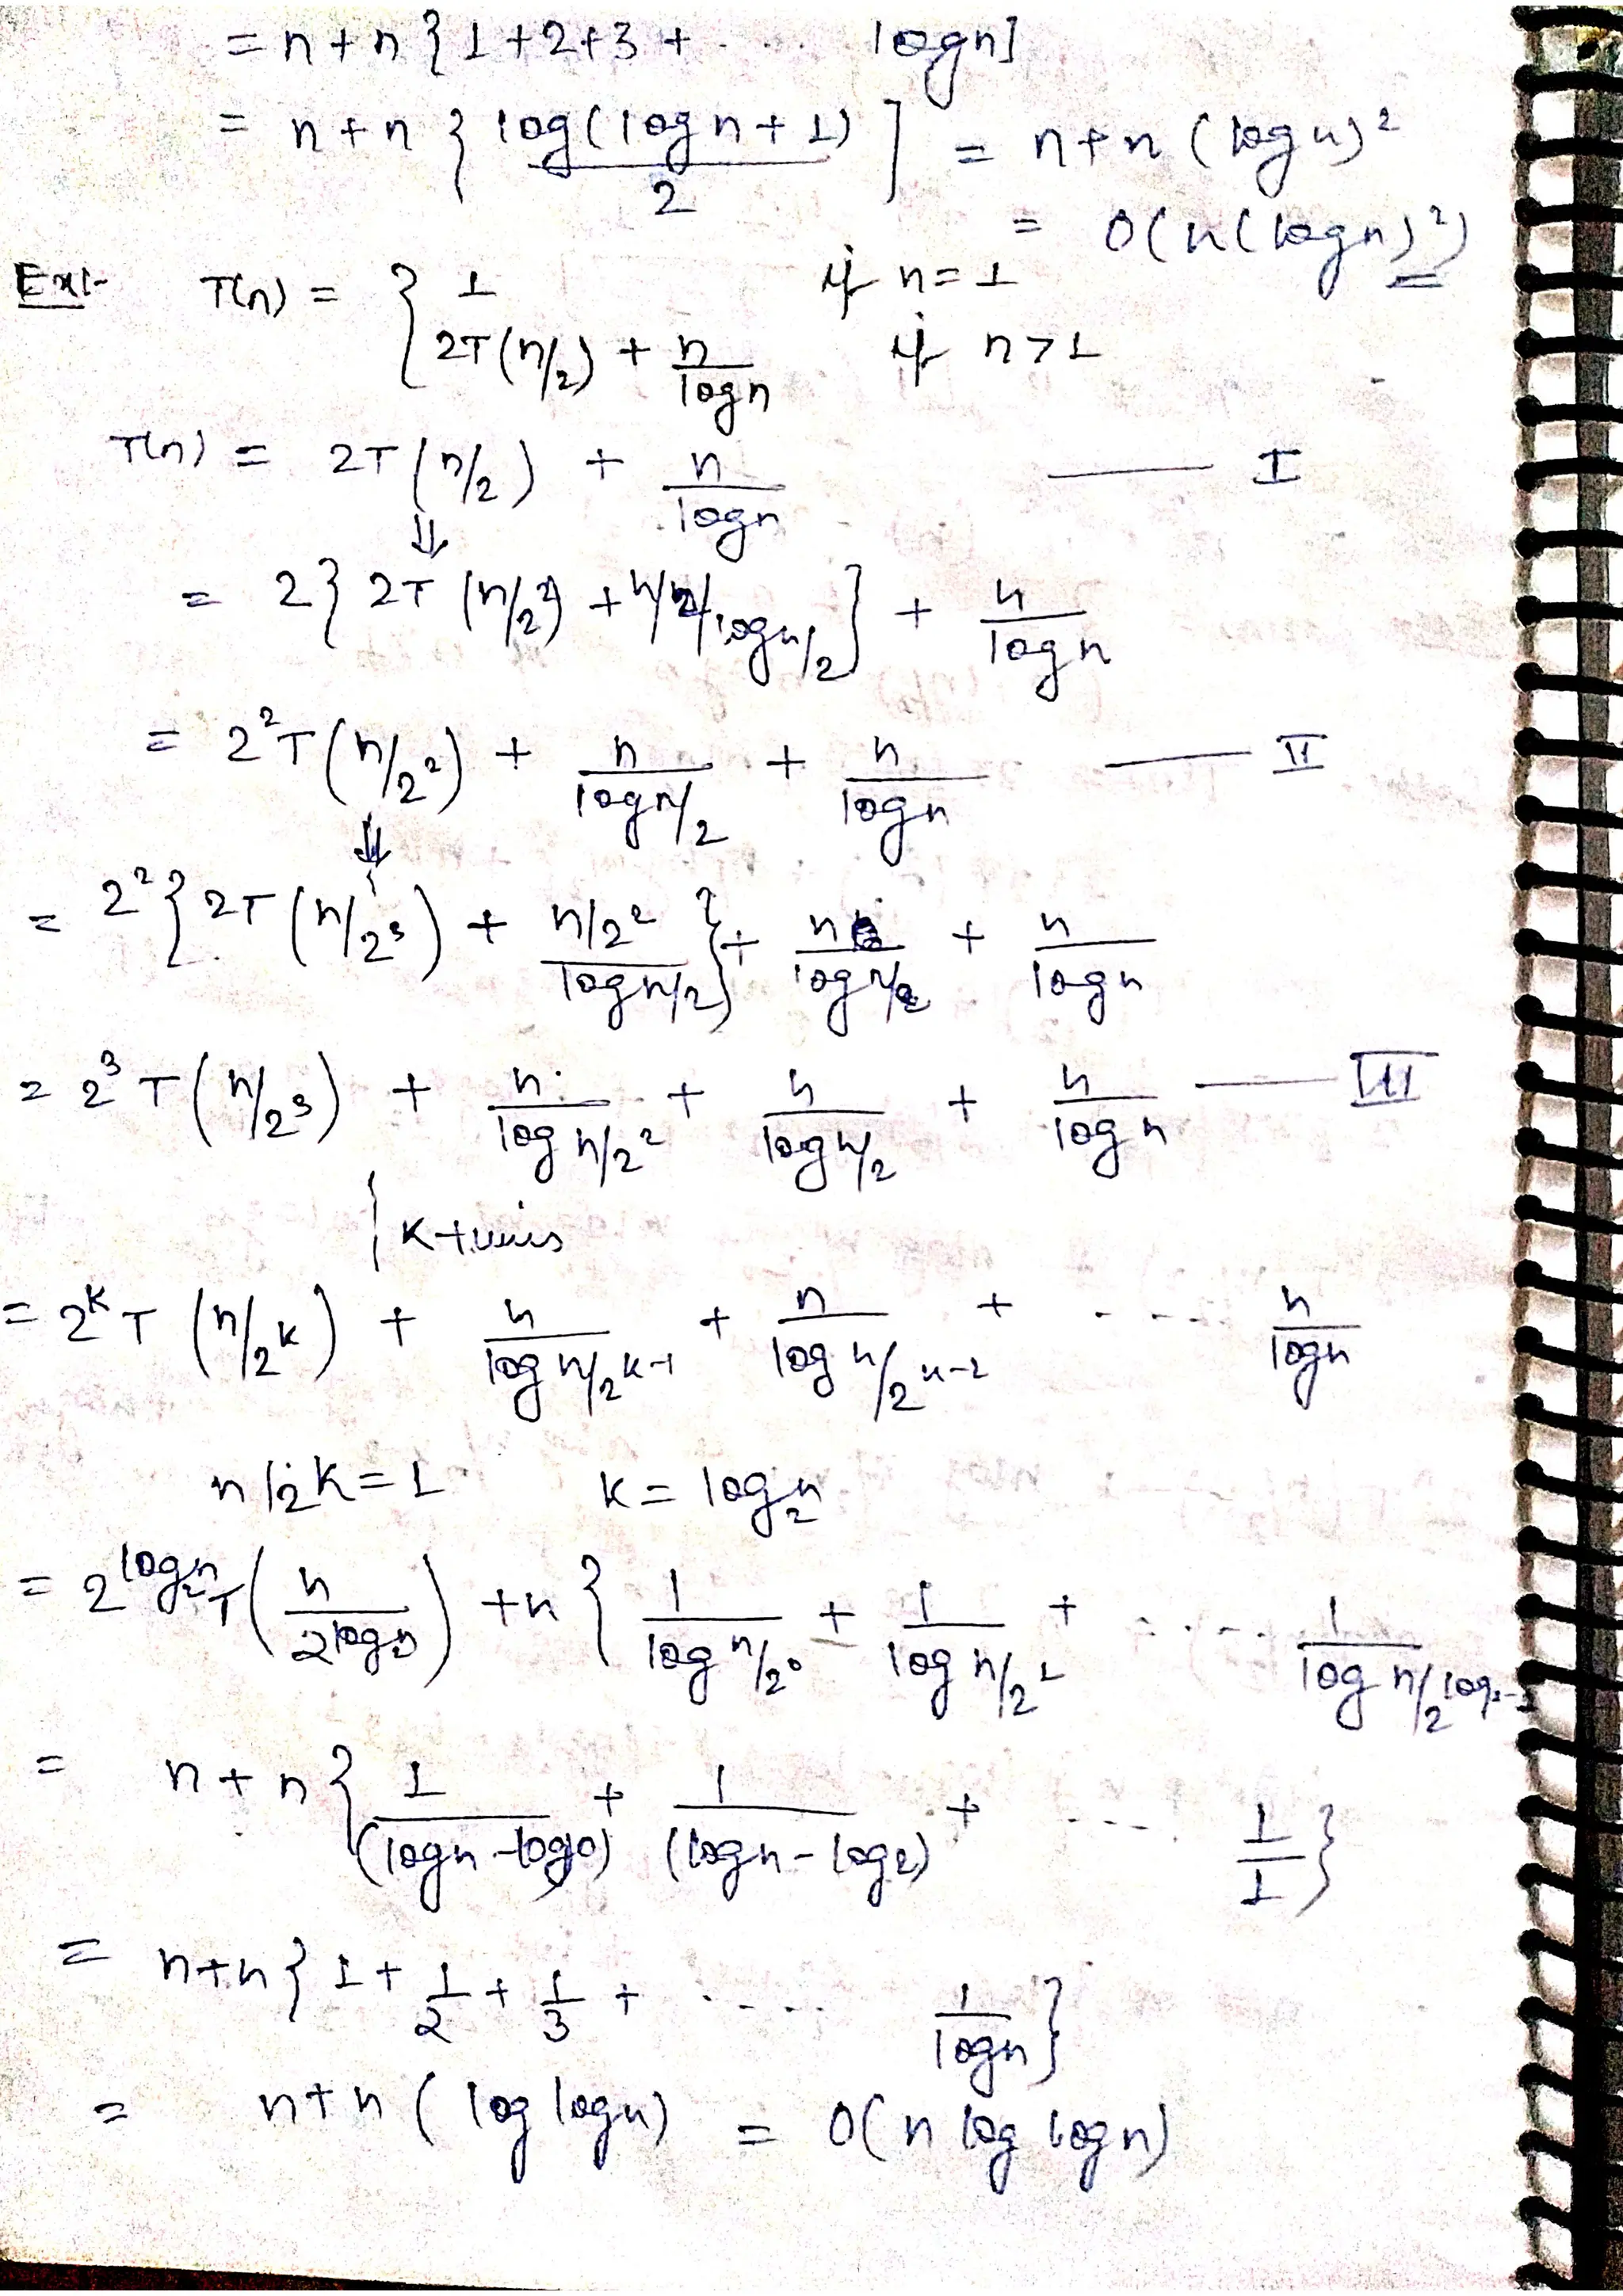 = n+n { 1+2+3+ .... logn]
= n+n { log(logn+1)/2 ] = n+n (logn)²
= O(n(logn)²)
Ex:- T(n) = { 1 if n=1
2T(n/2) + n/logn if n>1
T(n) = 2T(n/2) + n/logn —— I
⇓
= 2{ 2T(n/2²) + n/2/logn/2 } + n/logn
= 2²T(n/2²) + n/logn/2 + n/logn —— II
⇓
= 2²{ 2T(n/2³) + n/2²/logn/2 } + n/logn/2 + n/logn
= 2³T(n/2³) + n/logn/2² + n/logn/2 + n/logn —— III
K times
= 2^K T(n/2^K) + n/logn/2^K-1 + n/logn/2^K-2 + .... n/logn
n/2K=1 K = log₂n
= 2^log₂n T(n/2logn) +n { 1/logn/2⁰ + 1/logn/2¹ + .... 1/logn/2^logn-1
= n+n { 1/(logn-log0) + 1/(logn-log2) + .... 1/1 }
= n+n { 1+ 1/2 + 1/3 + ..... 1/logn }
= n+n ( log logn) = O(n log logn)